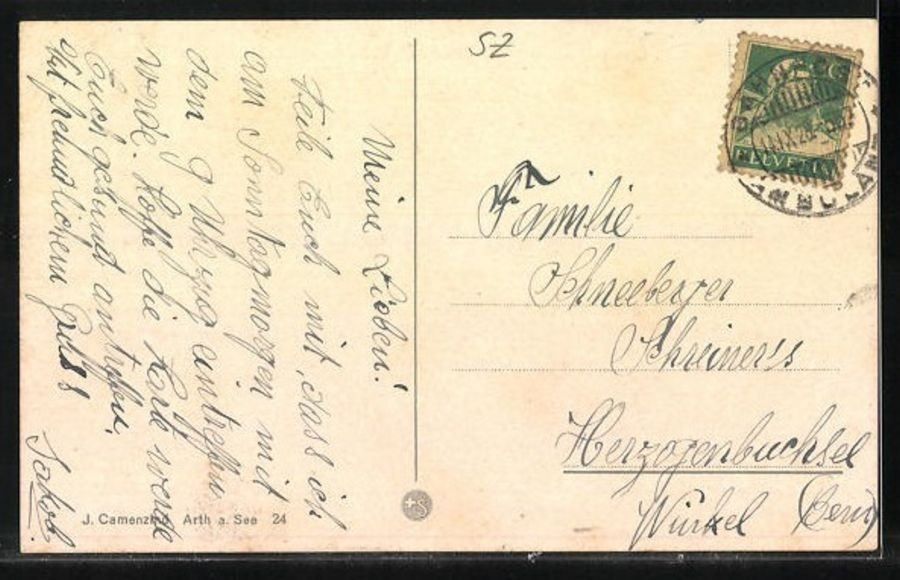 SZ
Meine Lieben!
Teile Euch mit, dass ich
am Sonntagmorgen mit
dem 9 Uhrzug eintreffen
werde. Hoffe die Karte werde
Euch gesund antreffen.
Mit freundlichem Gruss
Jakob.
Familie
Schneeberger
Schreiner's
Herzogenbuchsee
Winkel (Bern)
HELVETIA
AMBULANT
J. Camenzind, Arth a. See 24